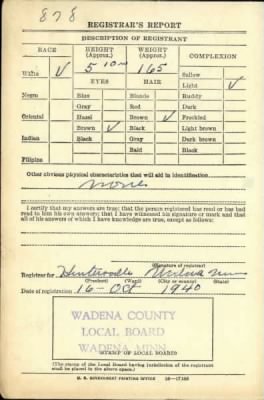 878
REGISTRAR'S REPORT
DESCRIPTION OF REGISTRANT
RACE HEIGHT (Approx.) WEIGHT (Approx.) COMPLEXION
5 10 165 Sallow
White ✓ EYES HAIR Light ✓
Negro Blue Blonde Ruddy
Gray Red Dark
Oriental Hazel Brown ✓ Freckled
Brown ✓ Black Light brown
Indian Black Gray Dark brown
Bald Black
Filipino
Other obvious physical characteristics that will aid in identification
None
I certify that my answers are true; that the person registered has read or has had
read to him his own answers; that I have witnessed his signature or mark and that
all of his answers of which I have knowledge are true, except as follows:
(Signature of registrar)
Registrar for
(Precinct) (Ward) (City or county) (State)
Date of registration 16 - Oct 1940
WADENA COUNTY
LOCAL BOARD
WADENA MINN.
(STAMP OF LOCAL BOARD)
(The stamp of the Local Board having jurisdiction of the registrant
shall be placed in the above space.)
U. S. GOVERNMENT PRINTING OFFICE 16—17105